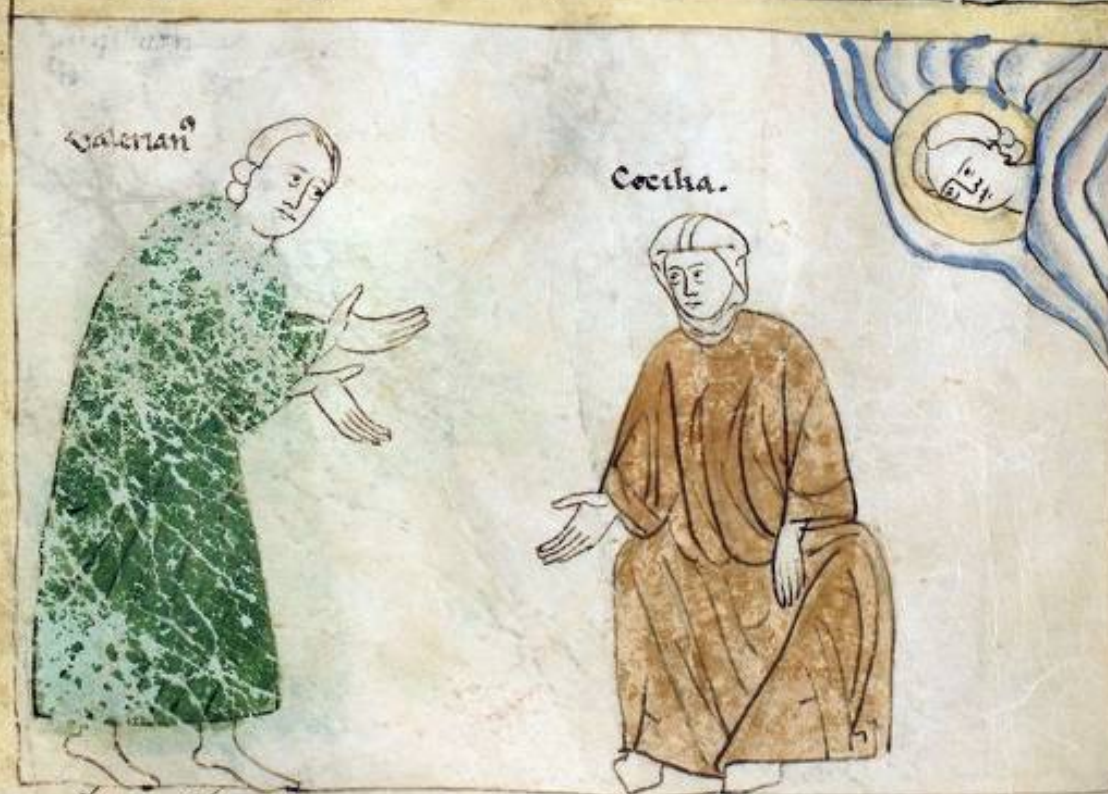 valerian⁹
Cecilia.